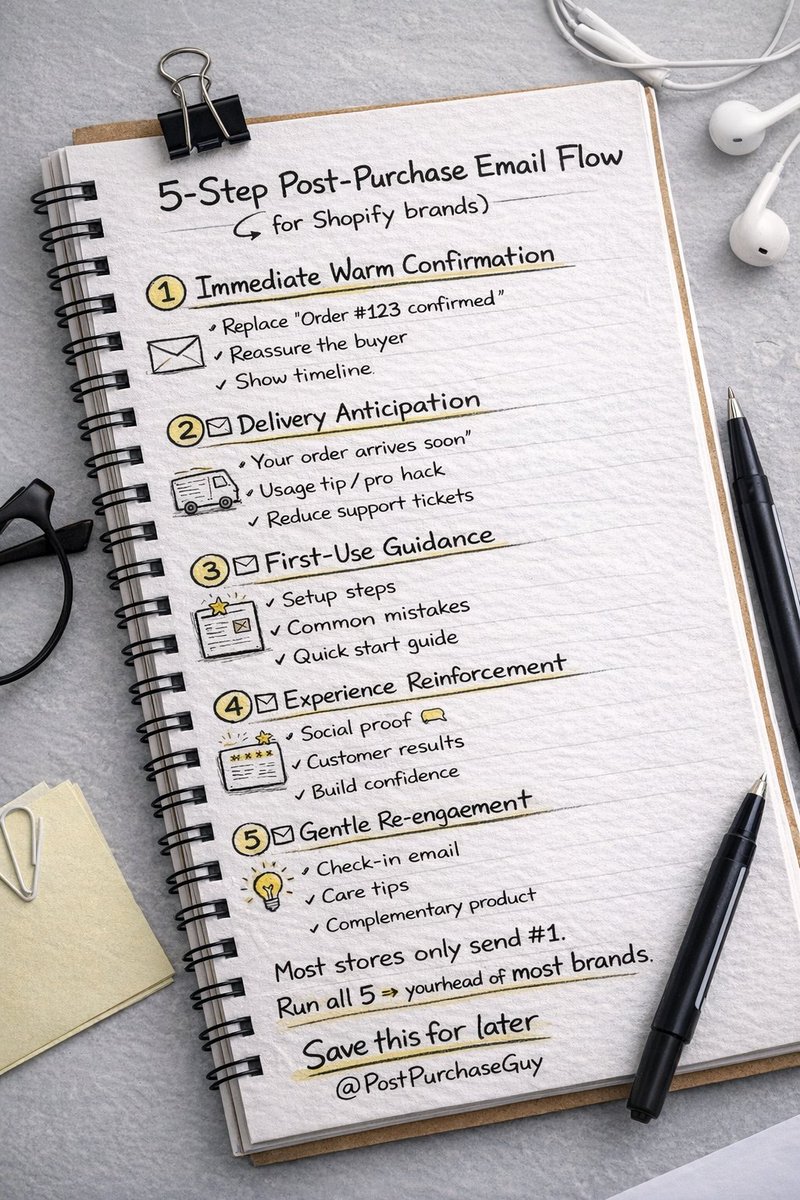 5-Step Post-Purchase Email Flow
for Shopify brands)
1 Immediate Warm Confirmation
Replace "Order #123 confirmed"
✓ Reassure the buyer
✓ Show timeline.
2 Delivery Anticipation
Your order arrives soon"
Usage tip / pro hack
✓ Reduce support tickets
3 First-Use Guidance
✓ Setup steps
✓ Common mistakes
✓ Quick start guide
4 Experience Reinforcement
Social proof
✓ Customer results
✓ Build confidence
5 Gentle Re-engaement
Check-in email
✓ Care tips
✓ Complementary product
Most stores only send #1.
Run all 5 → yourhead of most brands.
Save this for later
@PostPurchaseGuy